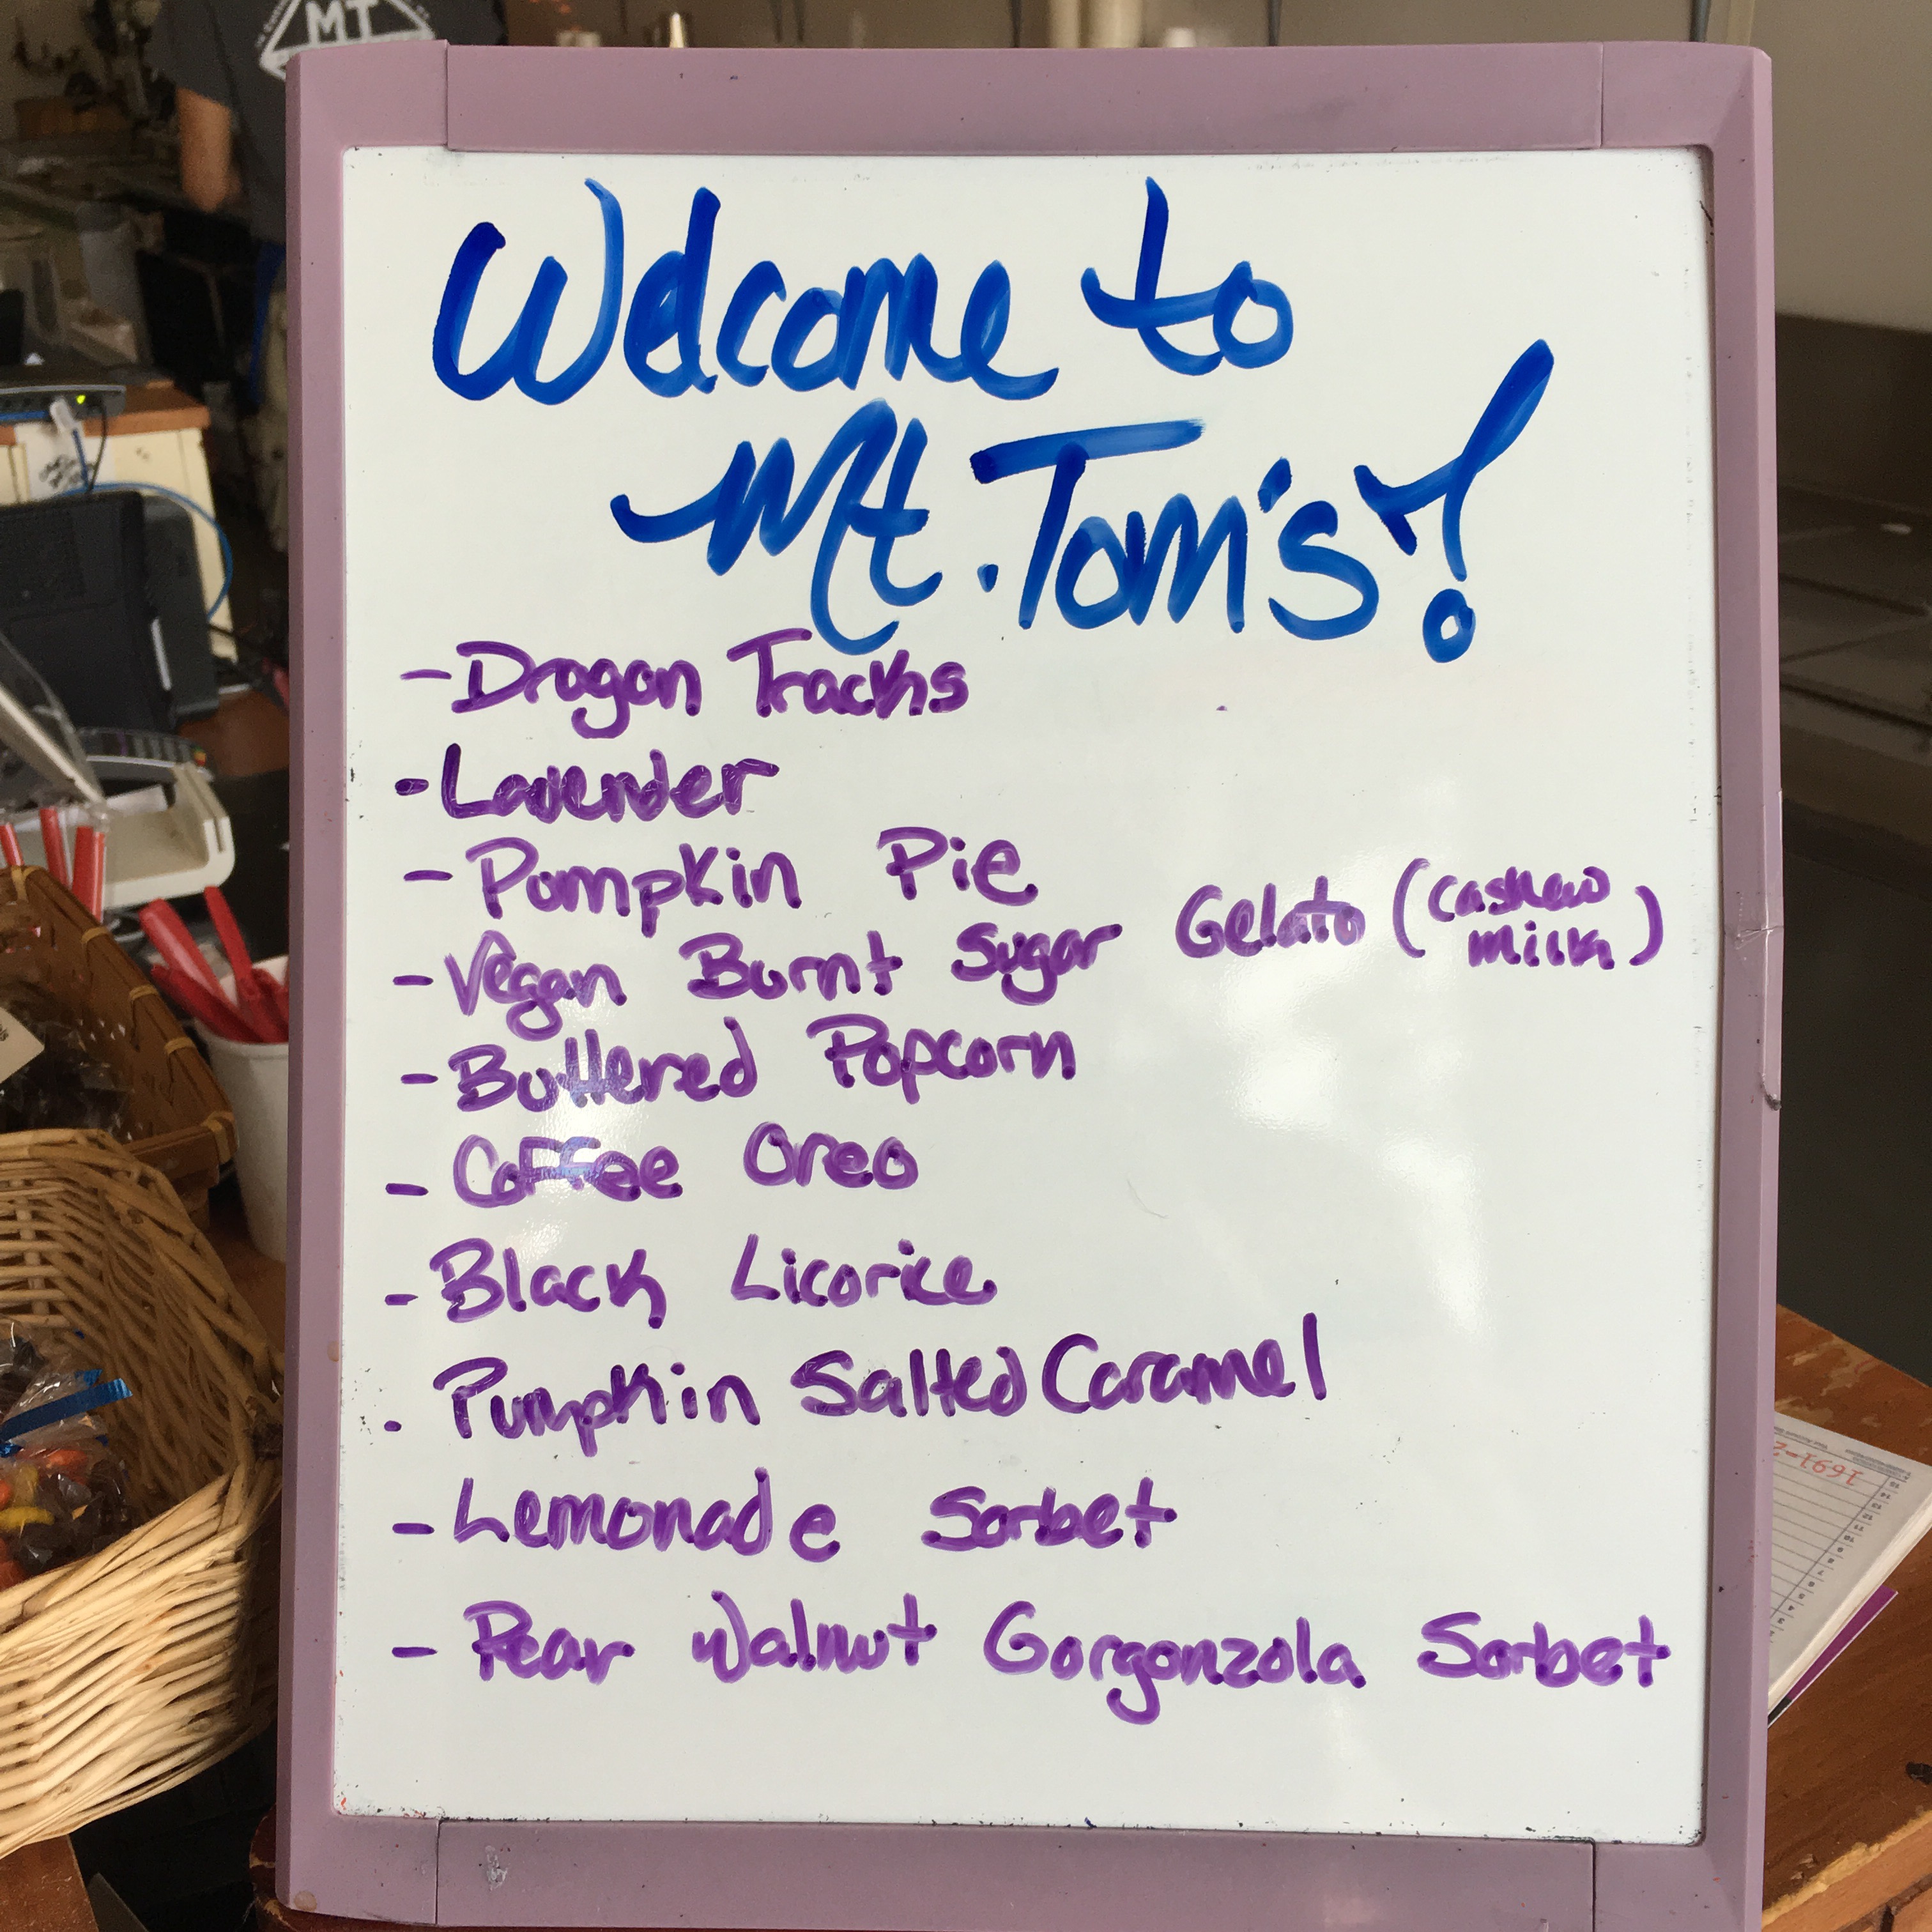 MT
Welcome to
Mt. Tom's!
- Dragon Tracks
- Lavender
- Pumpkin Pie
- Vegan Burnt Sugar Gelato (cashew
milk)
- Buttered Popcorn
- Coffee Oreo
- Black Licorice
- Pumpkin Salted Caramel
- Lemonade Sorbet
- Pear Walnut Gorgonzola Sorbet